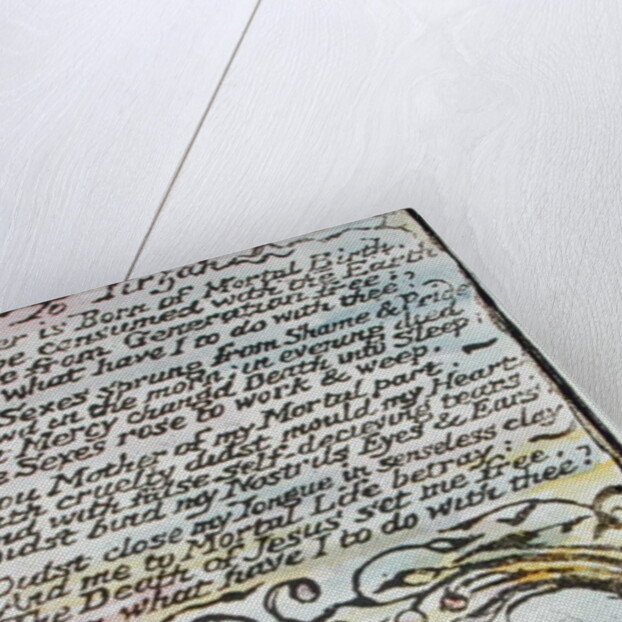 To Tirzah
er is Born of Mortal Birth.
e consumed with the Earth
e from Generation free:
what have I to do with thee?
Sexes sprung from Shame & Pride
wd in the morn: in evening died
Mercy changd Death into Sleep:
Sexes rose to work & weep.
ou Mother of my Mortal part.
ith cruelty didst mould my Heart.
nd with false self-decieving tears.
idst bind my Nostrils Eyes & Ears.
Didst close my Tongue in senseless clay
And me to Mortal Life betray:
The Death of Jesus set me free:
n what have I to do with thee?